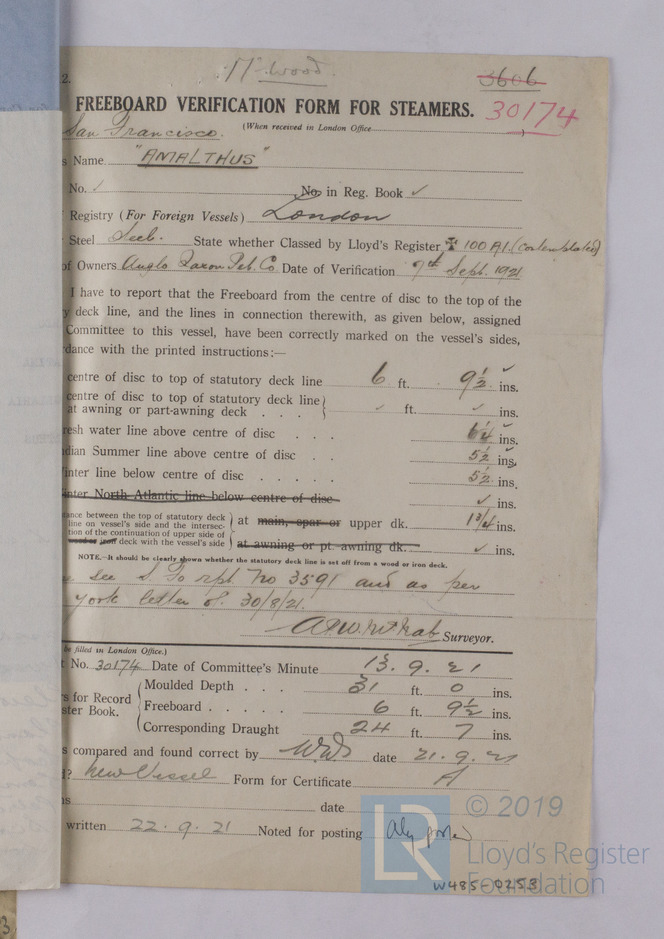 2.
wood.
3606
FREEBOARD VERIFICATION FORM FOR STEAMERS. 30174
San Francisco. (When received in London Office )
s Name. "AMALTHUS"
No. ✓ No. in Reg. Book ✓
Registry (For Foreign Vessels) London
Steel State whether Classed by Lloyd's Register ✠ 100 A1. (contemplated)
of Owners Anglo Saxon Pet. Co. Date of Verification 7th Sept. 1921
I have to report that the Freeboard from the centre of disc to the top of the
y deck line, and the lines in connection therewith, as given below, assigned
Committee to this vessel, have been correctly marked on the vessel's sides,
rdance with the printed instructions:—
centre of disc to top of statutory deck line 6 ft. 9½ ins. ✓
centre of disc to top of statutory deck line
at awning or part-awning deck . . . ✓ ft. ✓ ins.
resh water line above centre of disc . . . 6¼ ins. ✓
dian Summer line above centre of disc . . 5½ ins. ✓
inter line below centre of disc . . . . . 5½ ins.
inter North Atlantic line below centre of disc ✓ ins.
ance between the top of statutory deck
line on vessel's side and the intersec-
tion of the continuation of upper side of
wood or iron deck with the vessel's side
at main, spar or upper dk. 1¾ ins.
at awning or pt. awning dk. ✓ ins.
NOTE.—It should be clearly shown whether the statutory deck line is set off from a wood or iron deck.
see S. Fo rpt No 3591 and as per
york letter of 30/8/21.
Surveyor.
be filled in London Office.)
t No. 30174 Date of Committee's Minute 13. 9. 21
rs for Record
ster Book.
Moulded Depth . . . 31 ft. 0 ins.
Freeboard . . . . . 6 ft. 9½ ins.
Corresponding Draught 24 ft. 7 ins.
s compared and found correct by date 21. 9. 21
d? New Vessel Form for Certificate A
ns date
written 22. 9. 21 Noted for posting
LR
© 2019
Lloyd's Register
Foundation
W485-0253
3